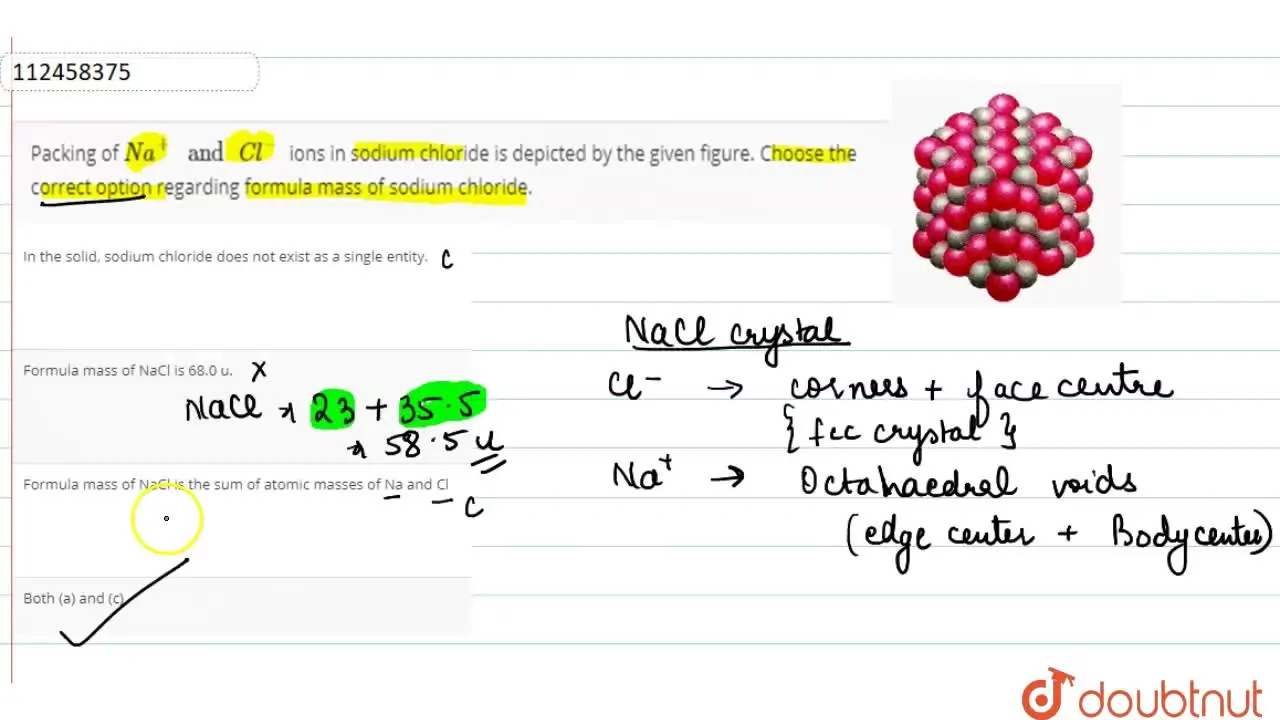 112458375
Packing of Na⁺ and Cl⁻ ions in sodium chloride is depicted by the given figure. Choose the
correct option regarding formula mass of sodium chloride.
In the solid, sodium chloride does not exist as a single entity. C
NaCl crystal
Formula mass of NaCl is 68.0 u. x
Cl⁻ → corners + face centre
NaCl → 23 + 35.5
{ fcc crystal }
→ 58.5 u
Na⁺ → Octahaedral voids
Formula mass of NaCl is the sum of atomic masses of Na and Cl
C
(edge center + Body center)
Both (a) and (c)
doubtnut